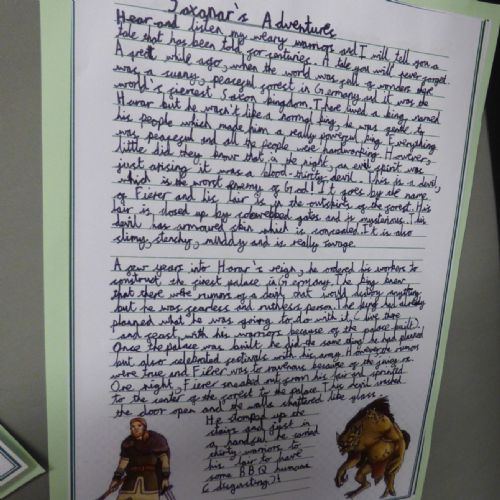 Jaxanar's Adventures
Hear and listen my weary warriors and I will tell you a
tale that has been told for centuries. A tale you will never forget.
A great while ago, when the world was full of wonders there
was a sunny, peaceful forest in Germany and it was the
world's fiercest Saxon kingdom. There lived a king named
Harar but he wasn't like a normal king, he was gentle to
his people which made him a really powerful king. Everything
was peaceful and all the people were hardworking. However,
little did they know that in the night, an evil spirit was
just arising it was a blood-thirsty devil. This is a devil,
which is the worst enemy of God! It goes by the name
of Fierer and his lair is in the outskirts of the forest. His
lair is closed up by cobwebbed gates and is mysterious. This
devil has armoured skin which is concealed. It is also
slimy, stenchy, muddy and is really savage.
A few years into Harar's reign, he ordered his workers to
construct the finest palace in Germany. The king knew
that there were rumors of a devil that would destroy anything
but he was fearless and ruthless person. The king had already
planned what he was going to do with it (live there
and feast with his warriors because of the palace built).
Once the palace was built he did the same thing he had planned
but also celebrated festivals with his army. However the rumors
were true and Fierer was ravenous because of the
One night, Fierer sneaked out from his lair and sprinted
to the center of the forest to the palace. This devil
the door open and the walls shattered like glass.
He stomped up the
stairs and just in
a handful he carried
thirty warriors to
his lair to have
some B.B.Q humans
(disgusting)!